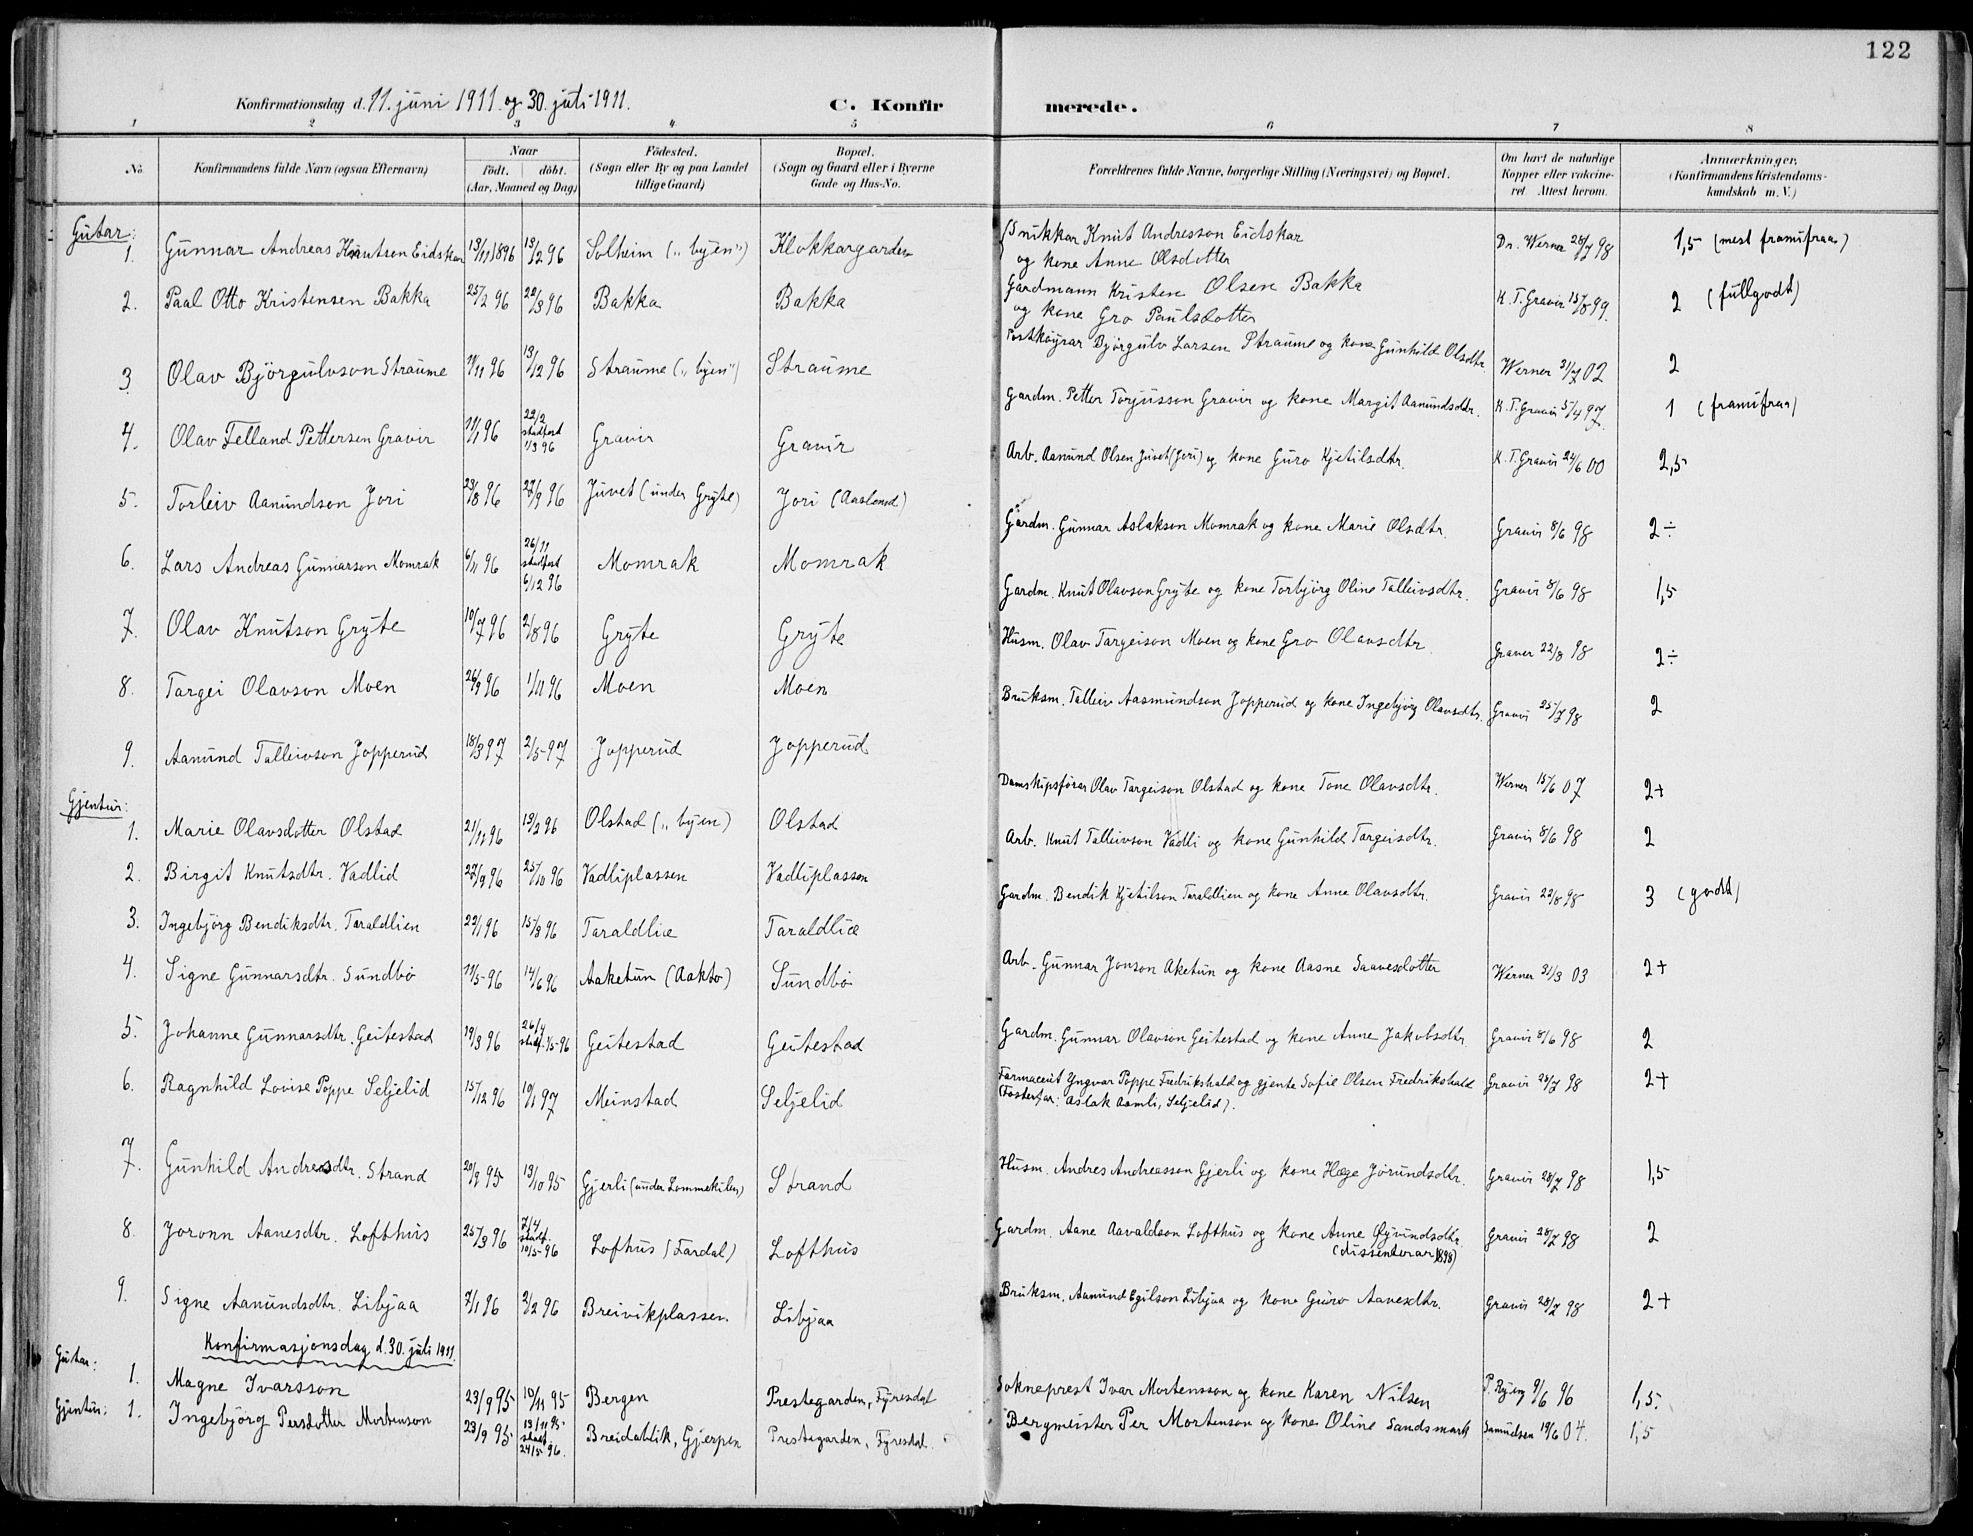 122
Konfirmationsdag d. 11. juni 1911 og 30. juli 1911. C. Konfirmerede.
1 2 3 4 5 6 7 8
No. Konfirmandens fulde Navn (ogsaa Efternavn) Naar født. døbt. (Aar, Maaned og Dag) Fødested. (Sogn eller By og paa Landet tillige Gaard) Bopæl. (Sogn og Gaard eller i Byerne Gade og Hus-No. Forældrenes fulde Navne, borgerlige Stilling (Næringsvei) og Bopæl. Om havt de naturlige Kopper eller vakcineret. Attest herom. Anmærkninger, (Konfirmandens Kristendomskundskab m. V.)
Gutar:
1. Gunnar Andreas Knutson Eidskar 13/11 1896 13/12 96 Solheim („byen") Klokkargarden Snikkar Knut Andresson Eidskar og kone Anne Olsdotter Dr. Werner 28/7 98 1,5 (mest framifraa)
2. Paal Otto Kristensen Bakka 25/2 96 22/3 96 Bakka Bakka Gardmann Kristen Olsen Bakka og kone Gro Paulsdotter K. T. Gravir 15/8 99. 2 (fullgodt)
3. Olav Björgulvson Straume 11/11 96 13/12 96 Straume („byen") Straume Postkøyrar Bjørgulv Larsen Straume og kone Gunhild Olsdtr. Werner 31/7 02 2
4. Olav Felland Pettersen Gravir 11/1 96 22/2 stadfest 1/3 96 Gravir Gravir Gardm. Petter Torjusson Gravir og kone Margit Aanundsdtr. K. T. Gravir 5/4 97. 1 (framifraa)
5. Torleiv Aanundson Jori 23/8 96 27/9 96 Juvet (under Gryte) Jori (Aasland) Arb. Aanund Olsen Juvet (Jori) og kone Guro Kjetilsdtr. K. T. Gravir 24/6 00 2,5
6. Lars Andreas Gunnarson Momrak 6/11 96 26/11 stadfest 6/12 96 Momrak Momrak Gardm. Gunnar Aslakson Momrak og kone Marie Olsdtr. Gravir 8/6 98 2÷
7. Olav Knutson Gryte 10/7 96 2/8 96 Gryte Gryte Gardm. Knut Olavson Gryte og kone Torbjörg Oline Talleivsdtr. Gravir 8/6 98 1,5
8. Targei Olavson Moen 26/9 96 1/11 96 Moen Moen Husm. Olav Targeison Moen og kone Gro Olavsdtr. Graver 22/8 98 2÷
9. Aanund Talleivson Jopperud 18/3 97 2/5-97 Jopperud Jopperud Bruksm. Talleiv Aasmundson Jopperud og kone Ingebjörg Olavsdtr. Gravir 25/7 98 2
Gjentur:
1. Marie Olavsdotter Olstad 21/11 96 13/2 96 Olstad („byen) Olstad Damskipsförar Olav Targeison Olstad og kone Tone Olavsdtr. Werner 15/6 07 2+
2. Birgit Knutsdtr. Vadlid 27/9 96 25/10 96 Vadliplassen Vadliplassen Arb. Knut Talleivson Vadli og kone Gunhild Targeisdtr. Gravir 8/6 98 2
3. Ingebjörg Bendiksdtr. Taraldlien 22/1 96 15/3 96 Taraldlia Taraldlia Gardm. Bendik Kjetilson Taraldlien og kone Anne Olavsdtr. Gravir 22/8 98 3 (godt)
4. Signe Gunnarsdtr. Sundbö 11/5-96 14/6 96 Aaketun (Aakto) Sundbö Arb. Gunnar Jonson Aketun og kone Aasne Saavesdotter Werner 31/3 03 2+
5. Johanne Gunnarsdtr. Geitestad 19/3 96 26/4 stadf. 1/5-96 Geitestad Geitestad Gardm. Gunnar Olavson Geitestad og kone Anne Jakobsdtr. Gravir 8/6 98 2
6. Ragnhild Lovise Poppe Seljelid 15/12 96 10/1 97 Meinstad Seljelid Farmaceut Yngvar Poppe Fredrikshald og gjente Sofie Olsen Fredrikshald (Fosterfar: Aslak Aamli, Seljelid). Gravir 25/7 98 2+
7. Gunhild Andresdtr. Strand 20/9 95 13/10 95 Gjerli (under Lommekilen) Strand Husm. Andres Andreasson Gjerli og kone Hæge Jørundsdtr. Gravir 28/7 98 1,5
8. Joronn Aanesdtr. Lofthus 25/3 96 7/4 stadf. 10/5-96 Lofhus (Fardal) Lofthus Gardm. Aane Aavaldson Lofthus og kone Anne Øyvindsdtr. (dissenterar 1898) Gravir 28/7 98 2
9. Signe Aanundsdtr. Libjaa 7/1 96 2/2 96 Breivikplassen. Libjaa Bruksm. Aanund Egilson Libjaa og kone Guro Aavesdtr. Gravir 28/7 98 2+
Konfirmasjonsdag d. 30. juli 1911.
Gutar: 1. Magne Ivarsson 23/9 95 10/11 95 Bergen Prestegarden, Fyresdal Sokneprest Ivar Mortensson og kone Karen Nilsen P. Ryjog 9/6 96 1,5.
Gjentur: 1. Ingebjörg Persdotter Mortenson 23/9 95 13/11 95 stadf. 24/5 96. Breidablik, Gjerpen Prestegarden, Fyresdal. Bergmeister Per Mortenson og kone Oline Sandsmark Samudsen 19/6 04. 1,5